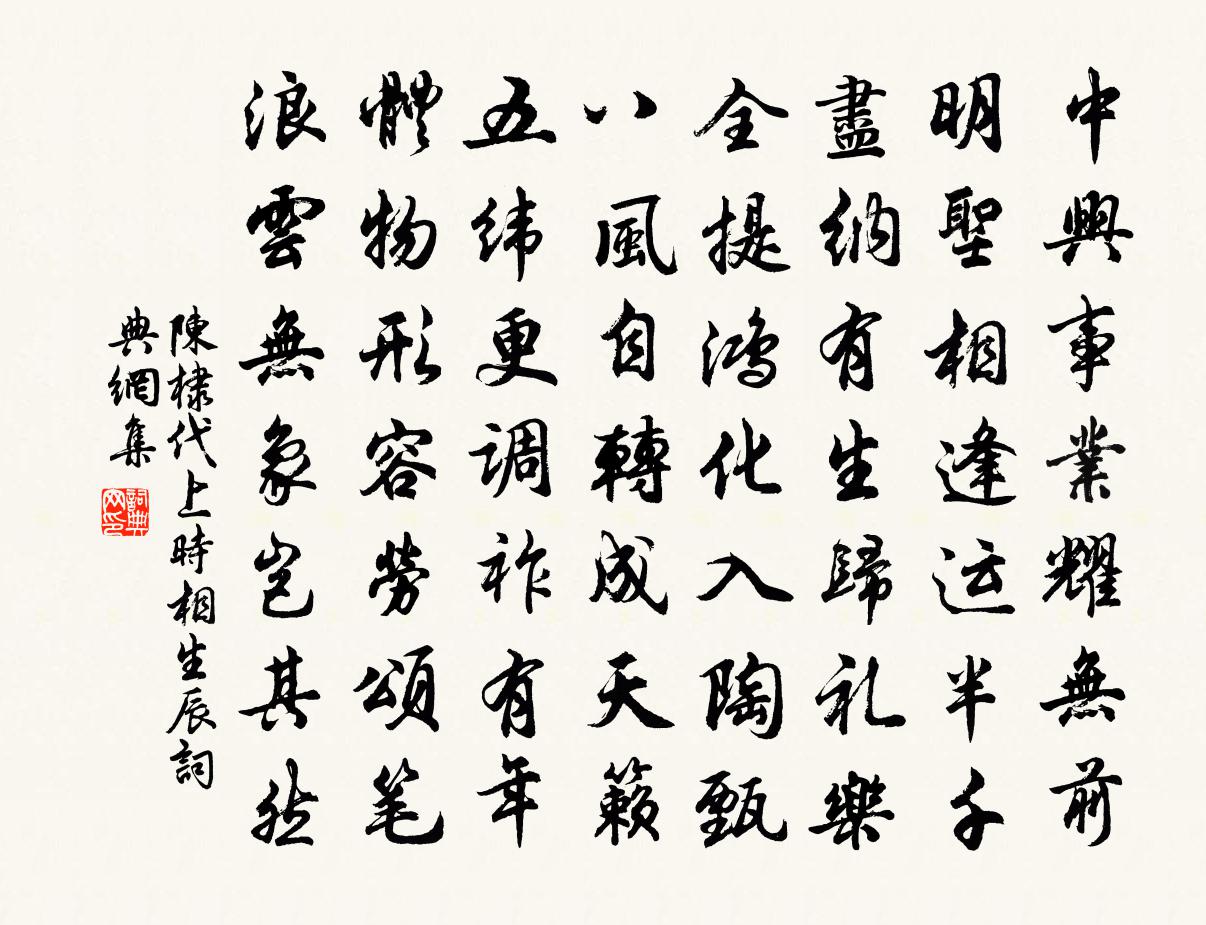 中興事業耀無前
明聖相逢运半千
盡納有生歸礼樂
全提鴻化入陶甄
八風自轉成天籟
五纬更调祚有年
體物形容勞頌笔
浪雲無象岂其然
陳棣代上時相生辰詞
典網集
詞典
网印